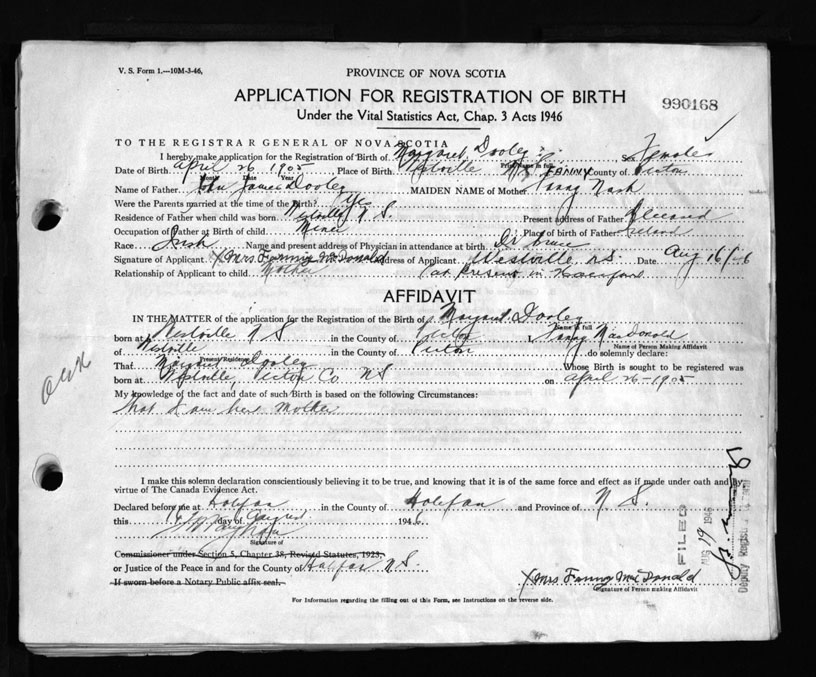 V. S. Form 1.—10M-3-46,
PROVINCE OF NOVA SCOTIA
APPLICATION FOR REGISTRATION OF BIRTH
990168
Under the Vital Statistics Act, Chap. 3 Acts 1946
TO THE REGISTRAR GENERAL OF NOVA SCOTIA
I hereby make application for the Registration of Birth of Margaret Dooley Sex Female
Print name in full
Date of Birth April 26 1905 Place of Birth Westville County of Pictou
Month Date Year
FANNY
Name of Father John James Dooley MAIDEN NAME of Mother Fanny Nash
Were the Parents married at the time of the Birth? Yes
Residence of Father when child was born Westville N S Present address of Father Deceased
Occupation of Father at Birth of child Miner Place of birth of Father Ireland
Race Irish Name and present address of Physician in attendance at birth Dr
Signature of Applicant X Mrs Fanny McDonald Address of Applicant Westville N.S. Date Aug 16/46
Relationship of Applicant to child Mother (at present in
AFFIDAVIT
IN THE MATTER of the application for the Registration of the Birth of Margaret Dooley
Name in full
born at Westville N S in the County of Pictou I, Fanny MacDonald
Name of Person Making Affidavit
of Westville in the County of Pictou do solemnly declare:
Present Residence
That Margaret Dooley Whose Birth is sought to be registered was
born at Westville, Pictou Co NS on April 26-1905
My knowledge of the fact and date of such Birth is based on the following Circumstances:
that I am her Mother
I make this solemn declaration conscientiously believing it to be true, and knowing that it is of the same force and effect as if made under oath and by
virtue of The Canada Evidence Act.
Declared before me at Halifax in the County of Halifax and Province of N. S.
this 16 day of August 1946.
Signature of
Commissioner under Section 5, Chapter 38, Revised Statutes, 1923,
or Justice of the Peace in and for the County of Halifax N.S.
If sworn before a Notary Public affix seal.
X Mrs Fanny McDonald
Signature of Person making Affidavit
For Information regarding the filling out of this Form, see Instructions on the reverse side.
FILED
AUG 19 1946
Deputy Registrar General